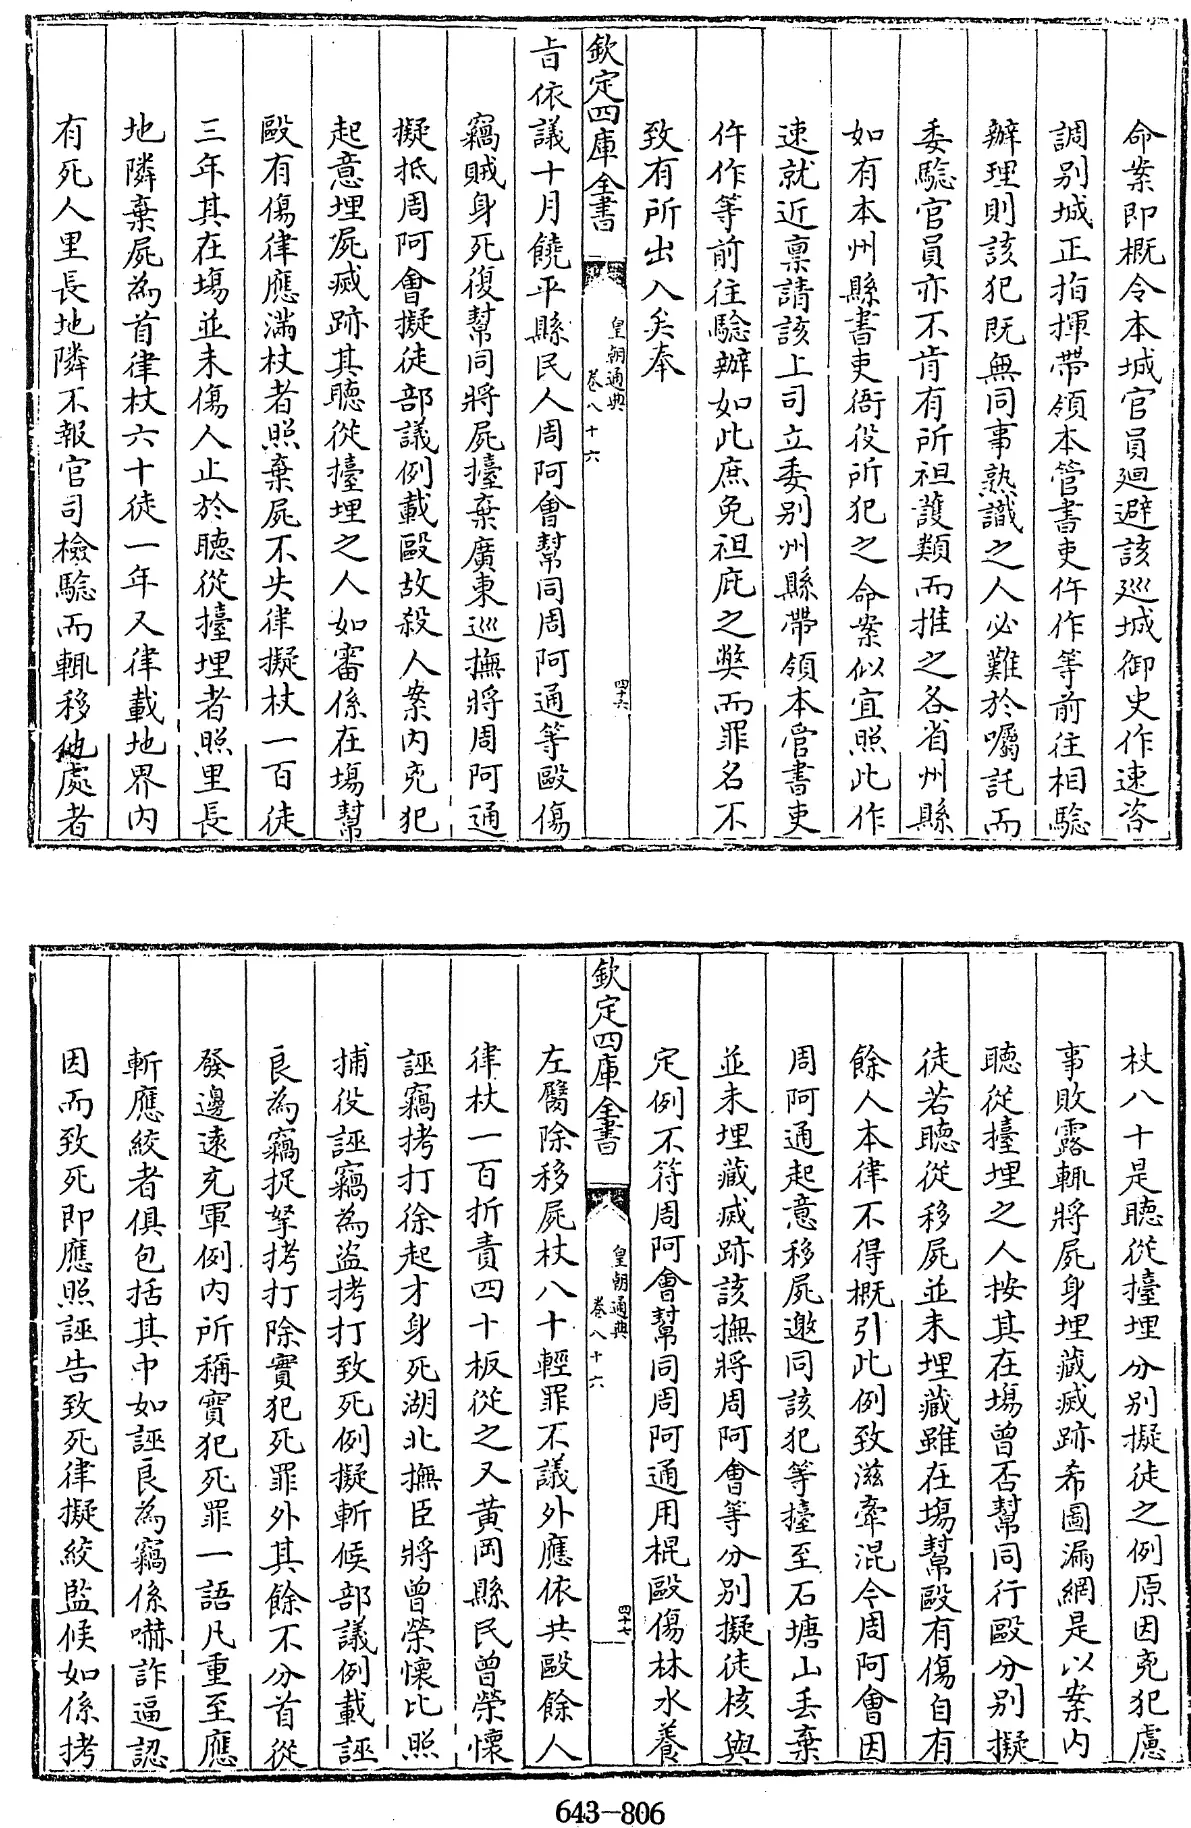 命案即概令本城官員廻避該巡城御史作速咨
調别城正指揮帶領本管書吏仵作等前往相驗
辦理則該犯既無同事熟識之人必難於囑託而
委驗官員亦不肯有所袒護類而推之各省州縣
如有本州縣書吏衙役所犯之命案似宜照此作
速就近禀請該上司立委别州縣帶領本管書吏
仵作等前往驗辦如此庶免袒庇之獘而罪名不
致有所出入矣奉
欽定四庫全書
皇朝通典
卷八十六
四十六
㫖依議十月饒平縣民人周阿會幫同周阿通等毆傷
竊賊身死復幫同將屍擡棄廣東巡撫將周阿通
擬抵周阿會擬徒部議例載毆故殺人案内兇犯
起意埋屍滅跡其聽從擡埋之人如審係在塲幫
毆有傷律應滿杖者照棄屍不失律擬杖一百徒
三年其在塲並未傷人止於聽從擡埋者照里長
地隣棄屍為首律杖六十徒一年又律載地界内
有死人里長地隣不報官司檢驗而輒移他處者
杖八十是聽從擡埋分别擬徒之例原因兇犯慮
事敗露輒將屍身埋藏滅跡希圖漏網是以案内
聽從擡埋之人按其在塲曾否幫同行毆分别擬
徒若聽從移屍並未埋藏雖在塲幫毆有傷自有
餘人本律不得概引此例致滋牽混今周阿會因
周阿通起意移屍邀同該犯等擡至石塘山丢棄
並未埋藏滅跡該撫將周阿會等分别擬徒核與
定例不符周阿會幫同周阿通用棍毆傷林水養
欽定四庫全書
皇朝通典
卷八十六
四十七
左臂除移屍杖八十輕罪不議外應依共毆餘人
律杖一百折責四十板從之又黄岡縣民曾榮懷
誣竊拷打徐起才身死湖北撫臣將曾榮懷比照
捕役誣竊為盜拷打致死例擬斬候部議例載誣
良為竊捉拏拷打除實犯死罪外其餘不分首從
發邊遠充軍例内所稱實犯死罪一語凡重至應
斬應絞者俱包括其中如誣良為竊係嚇詐逼認
因而致死即應照誣告致死律擬絞監候如係拷
643-806